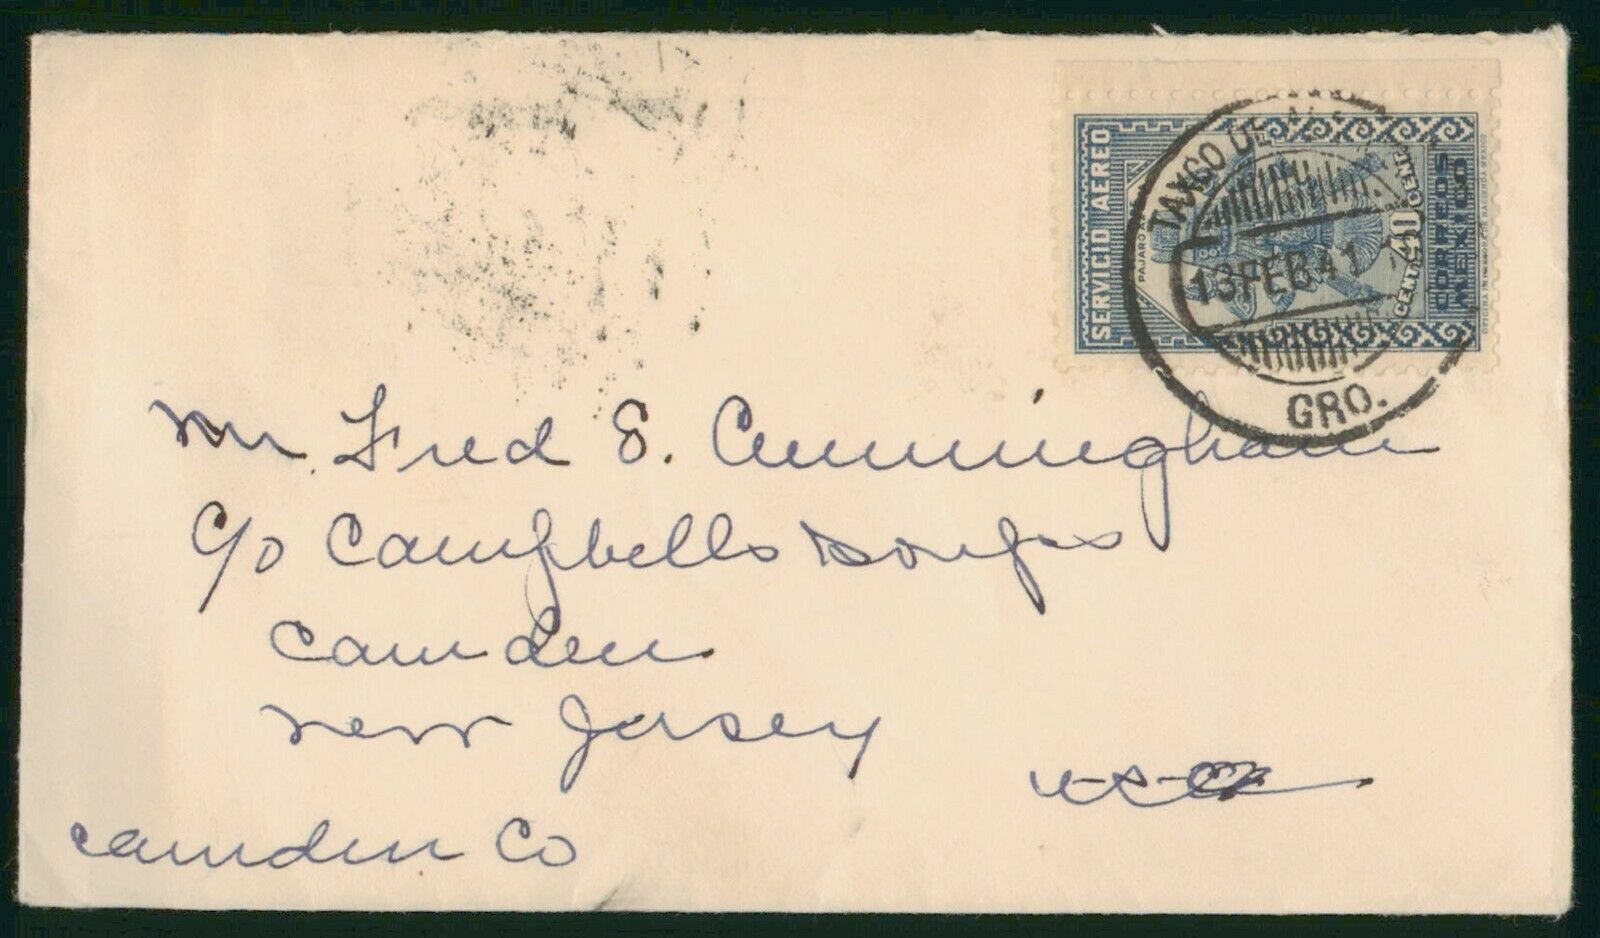 SERVICIO AEREO
CENTS. 40 CENTS.
CORREOS
MEXICO
TAXCO DE
13 FEB 41
GRO.
Mr. Fred E. Cunningham
c/o Campbells Soups
Camden
New Jersey
U-S-A
Camden Co